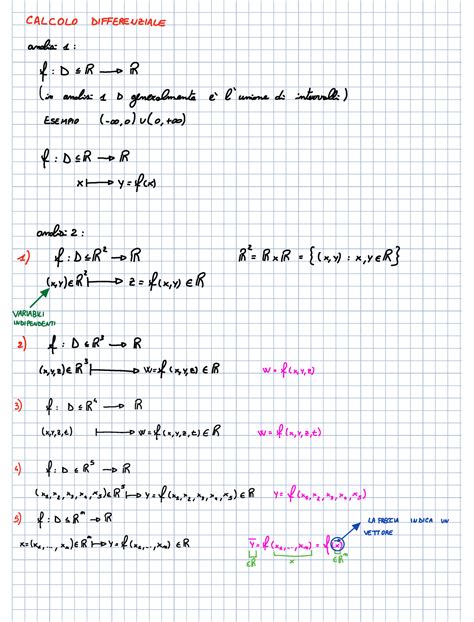 CALCOLO DIFFERENZIALE
analisi 1:
f: D ⊆ ℝ → ℝ
(in analisi 1 D generalmente è l'unione di intervalli)
ESEMPIO (-∞,0) ∪ (0,+∞)
f: D ⊆ ℝ → ℝ
x ↦ y = f(x)
analisi 2:
1) f: D ⊆ ℝ² → ℝ ℝ² = ℝ × ℝ = {(x,y) : x,y ∈ ℝ}
(x,y) ∈ ℝ² ↦ z = f(x,y) ∈ ℝ
VARIABILI
INDIPENDENTI
2) f: D ⊆ ℝ³ → ℝ
(x,y,z) ∈ ℝ³ ↦ w = f(x,y,z) ∈ ℝ w = f(x,y,z)
3) f: D ⊆ ℝ⁴ → ℝ
(x,y,z,t) ↦ w = f(x,y,z,t) ∈ ℝ w = f(x,y,z,t)
4) f: D ⊆ ℝ⁵ → ℝ
(x₁,x₂,x₃,x₄,x₅) ∈ ℝ⁵ ↦ y = f(x₁,x₂,x₃,x₄,x₅) ∈ ℝ y = f(x₁,x₂,x₃,x₄,x₅)
5) f: D ⊆ ℝⁿ → ℝ
LA FRECCIA INDICA UN
VETTORE
x = (x₁,...,xₙ) ∈ ℝⁿ ↦ y = f(x₁,...,xₙ) ∈ ℝ y = f(x₁,...,xₙ) = f(x)
∈ℝ x ∈ℝⁿ